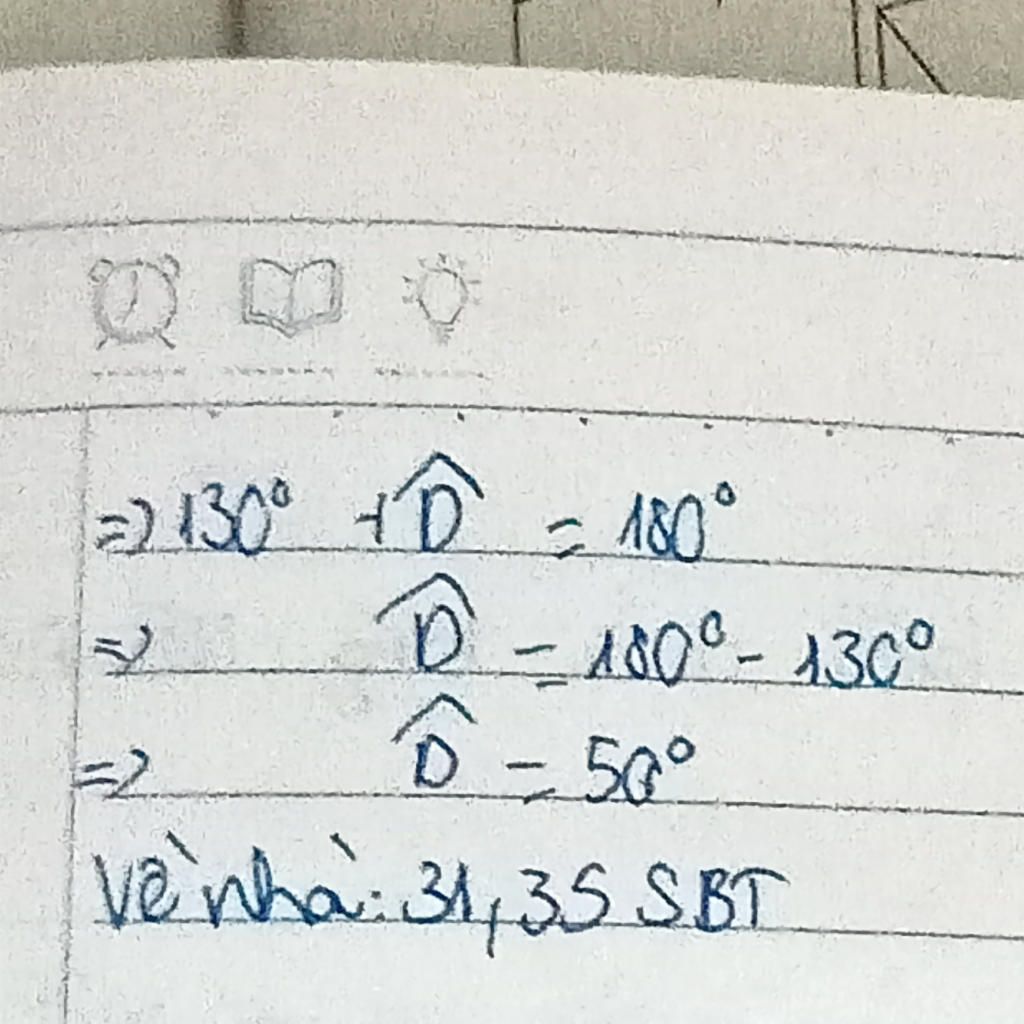 => 130° + D̂ = 180°
=> D̂ = 180° - 130°
=> D̂ = 50°
Về nhà: 31, 35 SBT